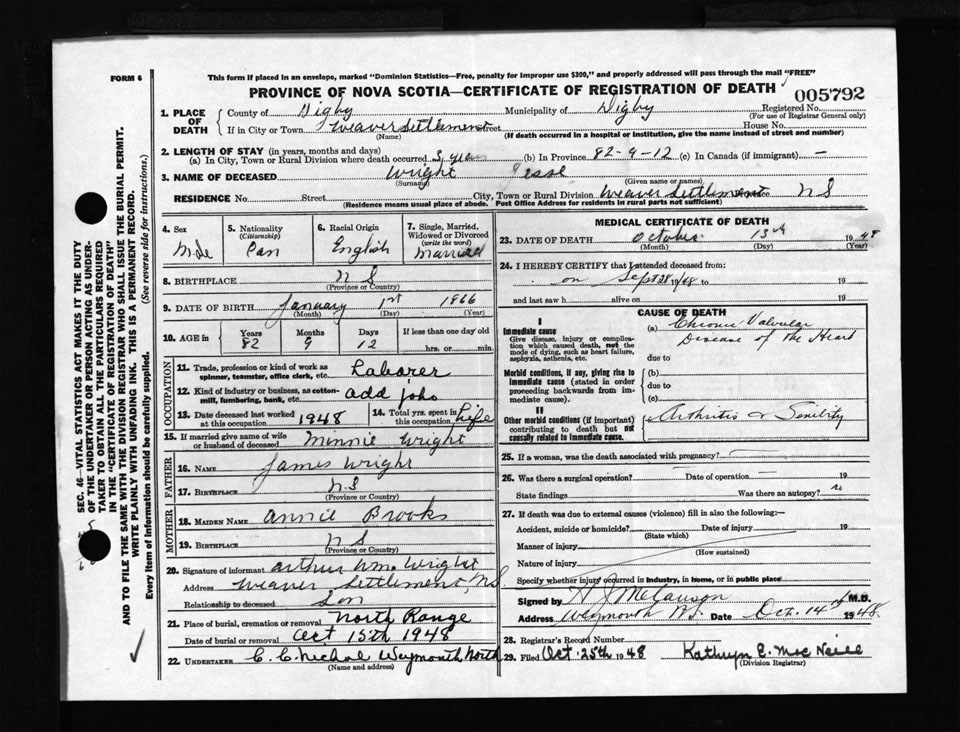 FORM 6
This form if placed in an envelope, marked "Dominion Statistics—Free, penalty for improper use $300," and properly addressed will pass through the mail "FREE"
PROVINCE OF NOVA SCOTIA—CERTIFICATE OF REGISTRATION OF DEATH
005792
1. PLACE OF DEATH
County of Digby Municipality of Digby Registered No.
(For use of Registrar General only)
If in City or Town Weaver Settlement Street House No.
(Name) (If death occurred in a hospital or institution, give the name instead of street and number)
2. LENGTH OF STAY (in years, months and days)
(a) In City, Town or Rural Division where death occurred 3 years (b) In Province 82-9-12 (c) In Canada (if immigrant) —
3. NAME OF DECEASED Wright Jesse
(Surname) (Given name or names)
RESIDENCE No. Street City, Town or Rural Division Weaver Settlement Province N S
(Residence means usual place of abode. Post Office Address for residents in rural parts not sufficient)
4. Sex Male
5. Nationality (Citizenship) Can
6. Racial Origin English
7. Single, Married, Widowed or Divorced (write the word) Married
8. BIRTHPLACE N S
(Province or Country)
9. DATE OF BIRTH January 1st 1866
(Month) (Day) (Year)
10. AGE in Years 82 Months 9 Days 12 If less than one day old hrs. or min.
OCCUPATION
11. Trade, profession or kind of work as spinner, teamster, office clerk, etc. Laborer
12. Kind of industry or business, as cotton-mill, lumbering, bank, etc. odd jobs
13. Date deceased last worked at this occupation 1948
14. Total yrs. spent in this occupation Life
15. If married give name of wife or husband of deceased Minnie Wright
FATHER
16. NAME James Wright
17. BIRTHPLACE N.S
(Province or Country)
MOTHER
18. MAIDEN NAME Annie Brooks
19. BIRTHPLACE N S
(Province or Country)
20. Signature of informant Arthur Wm Wright
Address Weaver Settlement, N.S
Relationship to deceased Son
21. Place of burial, cremation or removal North Range
Date of burial or removal Oct 15th 1948
22. UNDERTAKER C. C. Nichol Weymouth North
(Name and address)
MEDICAL CERTIFICATE OF DEATH
23. DATE OF DEATH October 13th 1948
(Month) (Day) (Year)
24. I HEREBY CERTIFY that I attended deceased from:
on Sept 28 1948 to 19
and last saw h alive on 19
CAUSE OF DEATH
I
Immediate cause
Give disease, injury or complication which caused death, not the mode of dying, such as heart failure, asphyxia, asthenia, etc.
(a) Chronic Valvular
Disease of the Heart
due to
Morbid conditions, if any, giving rise to immediate cause (stated in order proceeding backwards from immediate cause).
(b)
due to
(c)
II
Other morbid conditions (if important) contributing to death but not causally related to immediate cause.
Arthritis & Senility
25. If a woman, was the death associated with pregnancy?
26. Was there a surgical operation? Date of operation 19
State findings Was there an autopsy? no
27. If death was due to external causes (violence) fill in also the following:—
Accident, suicide or homicide? Date of injury 19
(State which)
Manner of injury
(How sustained)
Nature of injury
Specify whether injury occurred in industry, in home, or in public place
Signed by M.D.
Address Weymouth N.S. Date Oct. 14th 1948
28. Registrar's Record Number
29. Filed Oct. 25th 1948 Kathryn E. Mac Neill
(Division Registrar)
SEC. 46—VITAL STATISTICS ACT MAKES IT THE DUTY
OF THE UNDERTAKER OR PERSON ACTING AS UNDER-
TAKER TO OBTAIN ALL THE PARTICULARS REQUIRED
IN THE "CERTIFICATE OF REGISTRATION OF DEATH"
AND TO FILE THE SAME WITH THE DIVISION REGISTRAR WHO SHALL ISSUE THE BURIAL PERMIT.
WRITE PLAINLY WITH UNFADING INK. THIS IS A PERMANENT RECORD.
Every item of information should be carefully supplied. (See reverse side for instructions.)